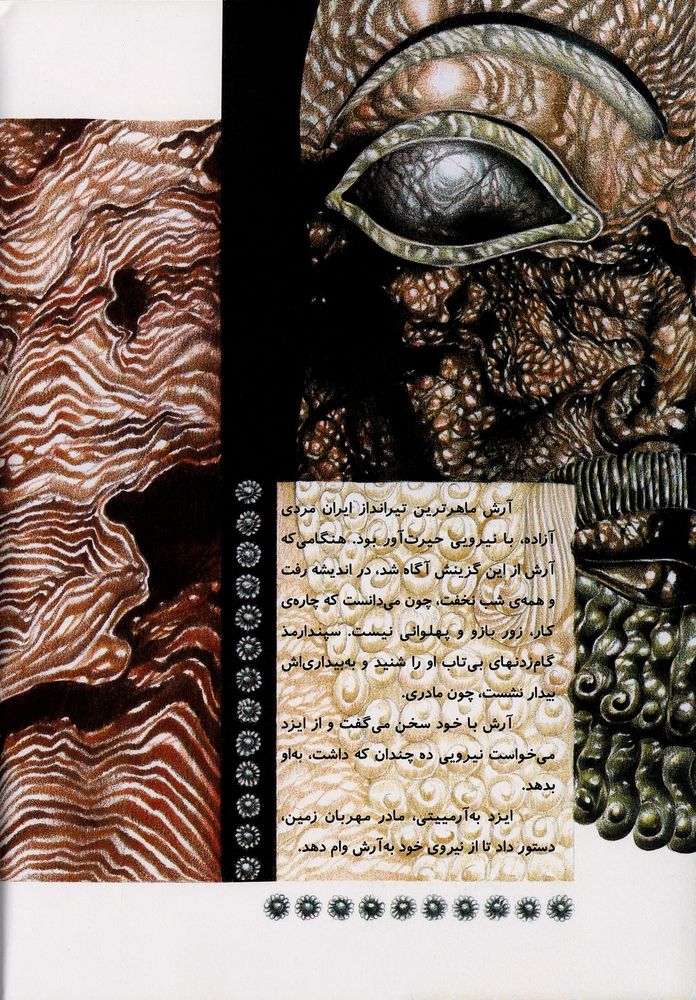 آرش ماهرترین تیرانداز ایران مردی
آزاده، با نیرویی حیرت‌آور بود. هنگامی‌که
آرش از این گزینش آگاه شد، در اندیشه رفت
و همه‌ی شب نخفت، چون می‌دانست که چاره‌ی
کار، زور بازو و پهلوانی نیست. سپندارمذ
گام‌زدنهای بی‌تاب او را شنید و به‌بیداری‌اش
بیدار نشست، چون مادری.
آرش با خود سخن می‌گفت و از ایزد
می‌خواست نیرویی ده چندان که داشت، به‌او
بدهد.
ایزد به‌آرمییتی، مادر مهربان زمین،
دستور داد تا از نیروی خود به‌آرش وام دهد.